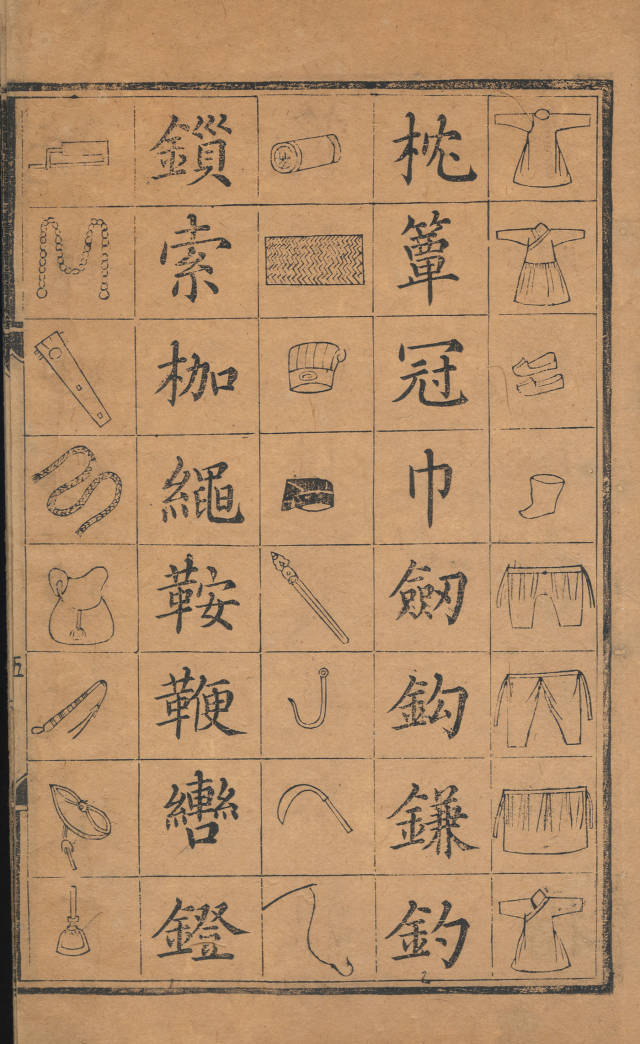 枕簟冠巾劒鈎鎌釣
鎻索枷繩鞍鞭轡鐙
五